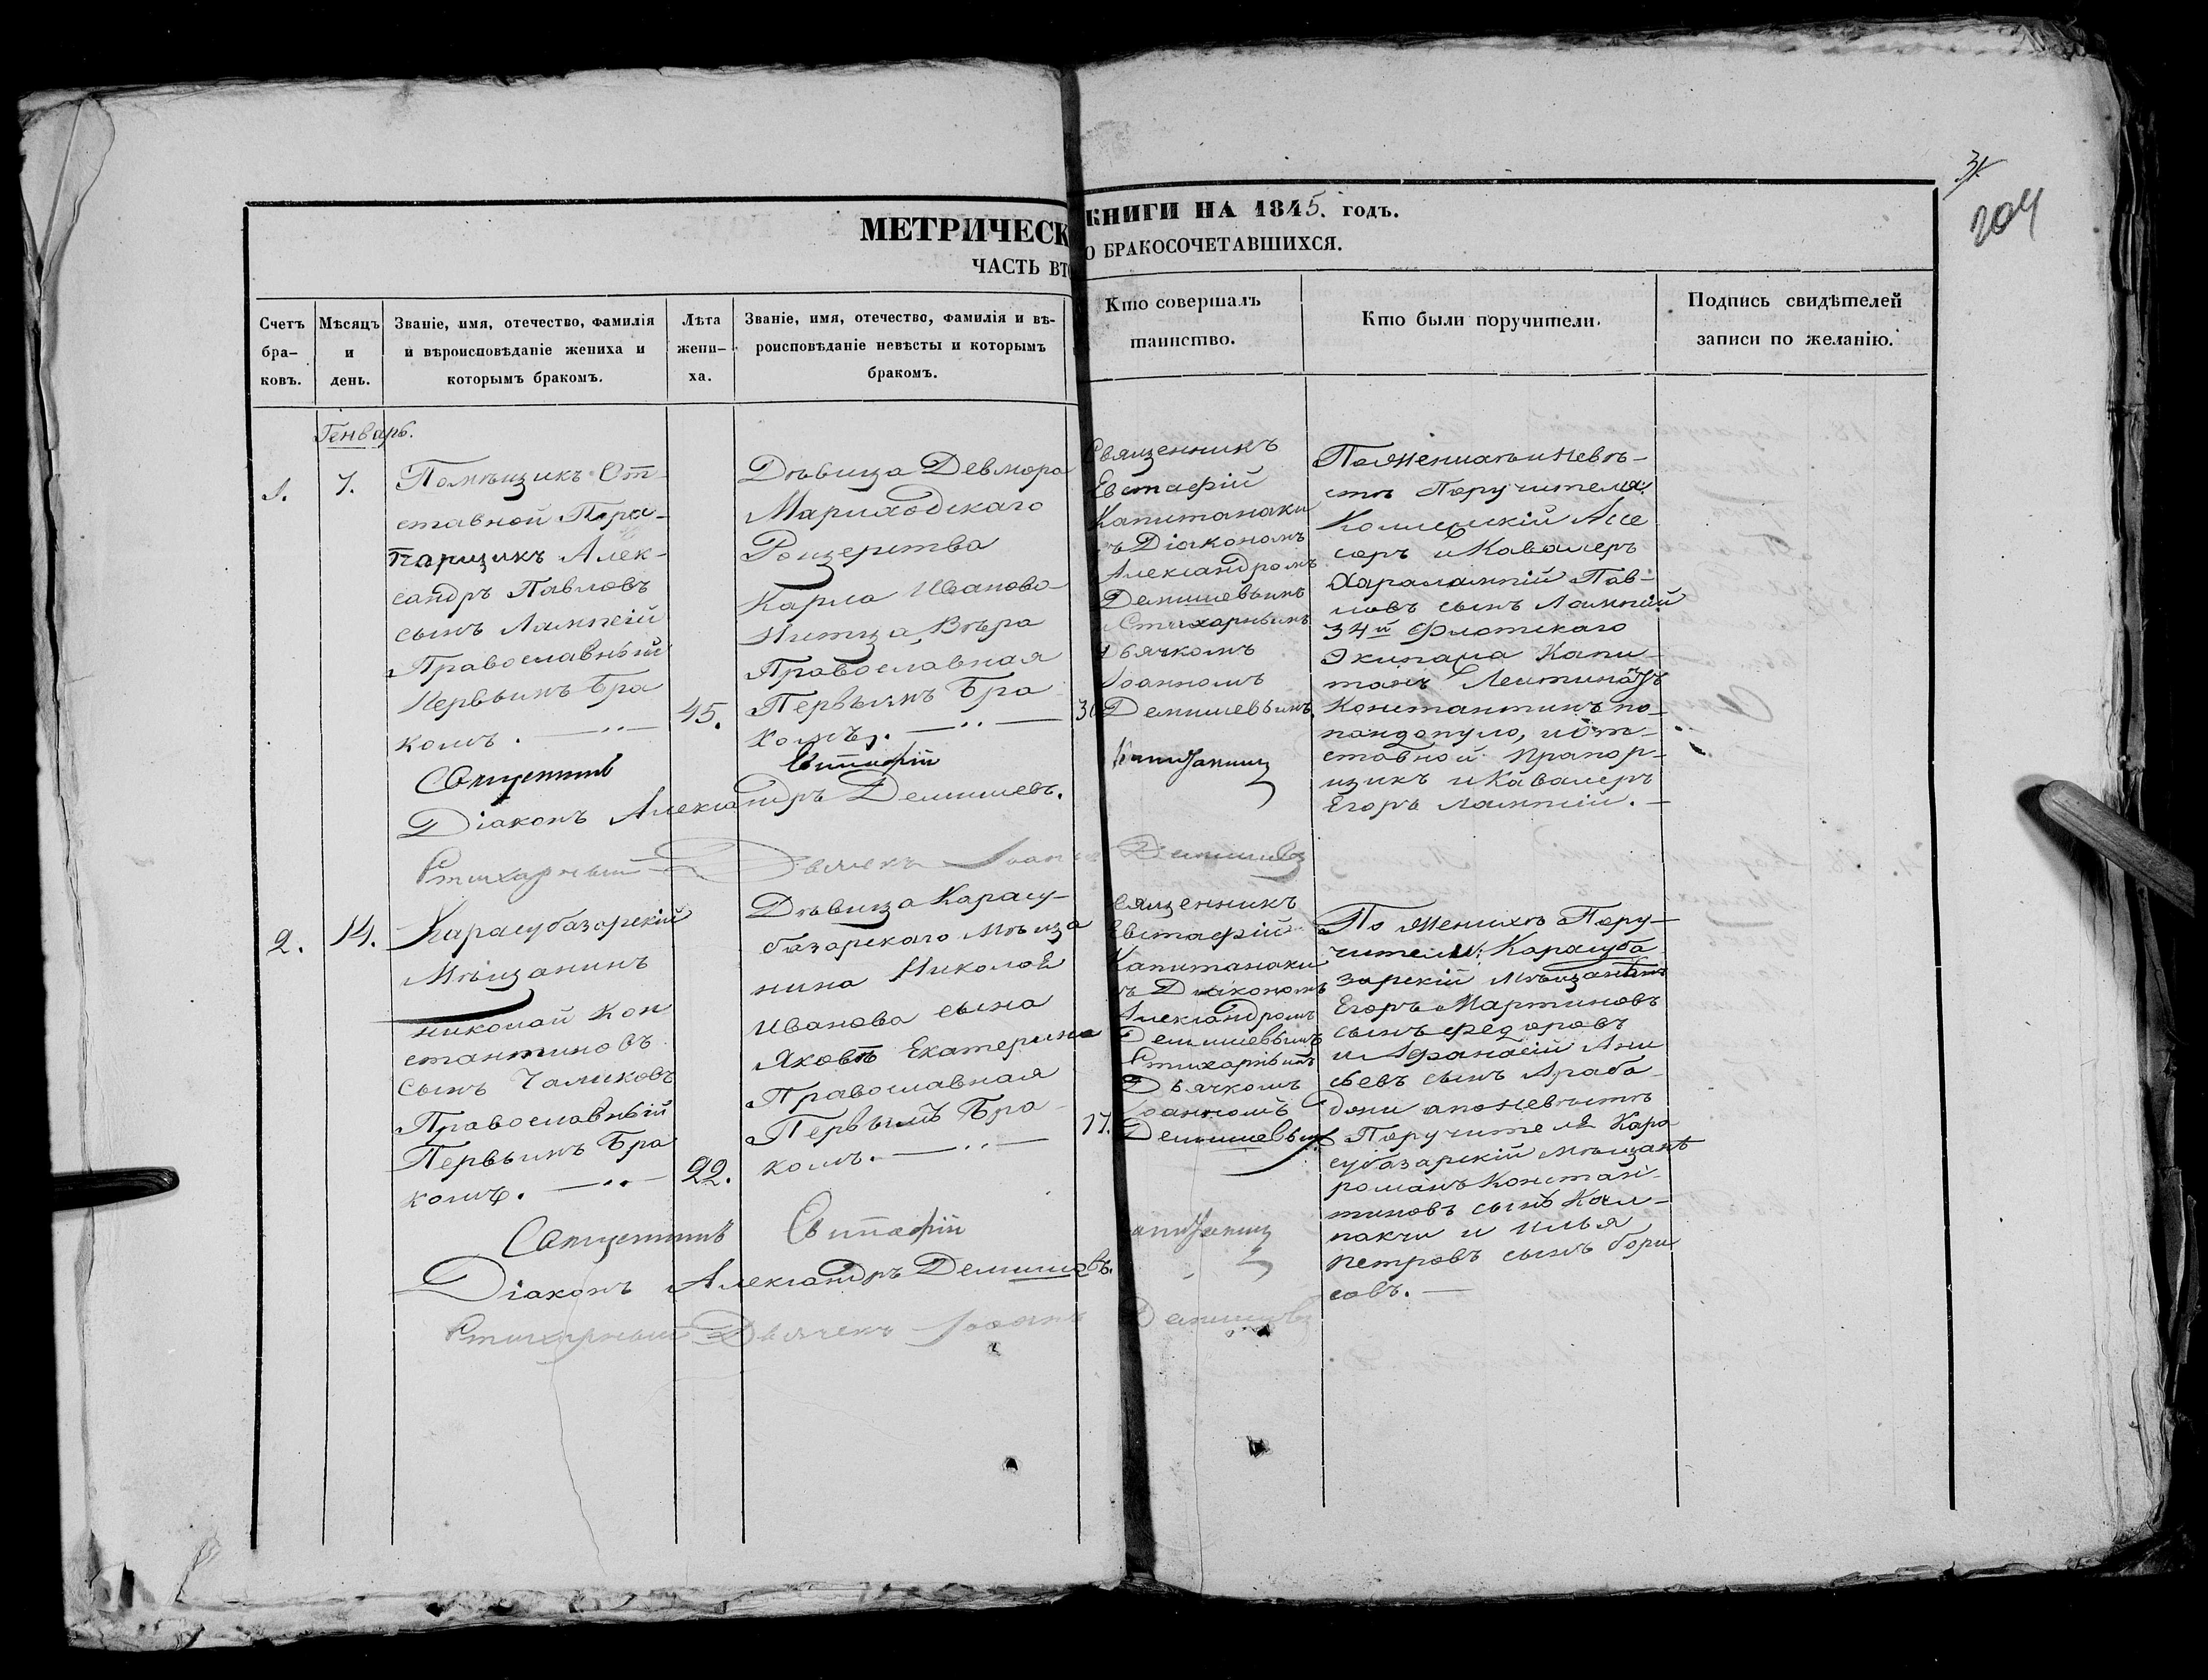 204
МЕТРИЧЕСК КНИГИ НА 1845. годъ.
ЧАСТЬ ВТО О БРАКОСОЧЕТАВШИХСЯ.
Счетъ бра-
ковъ.
Мѣсяцъ
и
день.
Званіе, имя, отечество, фамилія
и вѣроисповѣданіе жениха и
которымъ бракомъ.
Лѣта
жени-
ха.
Званіе, имя, отечество, фамилія и вѣ-
роисповѣданіе невѣсты и которымъ
бракомъ.
Кто совершалъ
таинство.
Кто были поручители.
Подпись свидѣтелей
записи по желанію.
Генварь.
1.
7.
Помѣщикъ От
ставной Пра-
порщикъ Алек-
сандръ Павловъ
сынъ Лампсій
Православный
Первымъ Бра
комъ.
45.
Дѣвица
Карла Иванова
Вѣра
Православная
Первымъ Бра
комъ.
Священникъ
Евстафій
Капитанаки
съ Діакономъ
Александромъ
Демишевымъ
и Стихарнымъ
Дьячкомъ
Іоанномъ
Демишевымъ.
По женихѣ и невѣ-
стѣ Поручителя:
Коллежскій Ассе
соръ и Кавалеръ
Харалампій Пав-
ловъ сынъ Лампсій
34й Флотскаго
Экипажа Капи-
танъ Лейтинантъ
Константинъ по-
пандопуло, и От-
ставной Прапор-
щикъ и Кавалеръ
Егоръ Лампсій.
Священникъ Евстафій
Діаконъ Александръ Демишевъ.
Стихарный Дьячекъ Іоаннъ Демишевъ
2.
14.
Карасубазарскій
Мѣщанинъ
николай Кон
стантиновъ
сынъ Чаликовъ
Православный
Первымъ Бра
комъ.
22.
Дѣвица Карасу-
базарскаго Мѣща
нина Николая
Иванова сына
Яковъ Екатерина
Православная
Первымъ Бра
комъ.
17.
Священникъ
Евстафій
Капитанаки
съ Діакономъ
Александромъ
Демишевымъ
Стихарнымъ
Дьячкомъ
Іоанномъ
Демишевым
По женихѣ Пору-
чители: Карасуба
зарскій Мѣщанинъ
Егоръ Мартиновъ
сынъ Федоровъ
и Афанасій Ани
сьевъ сынъ Араба
джи а по невѣстѣ
Поручителя Кара
субазарскій Мѣщанъ
романъ Констан-
тиновъ сынъ Кал-
пакчи и Илья
Петровъ сынъ бори
совъ.
Священникъ Евстафій
Діаконъ Александръ Демишевъ.
Стихарный Дьячекъ Іоаннъ Демишевъ